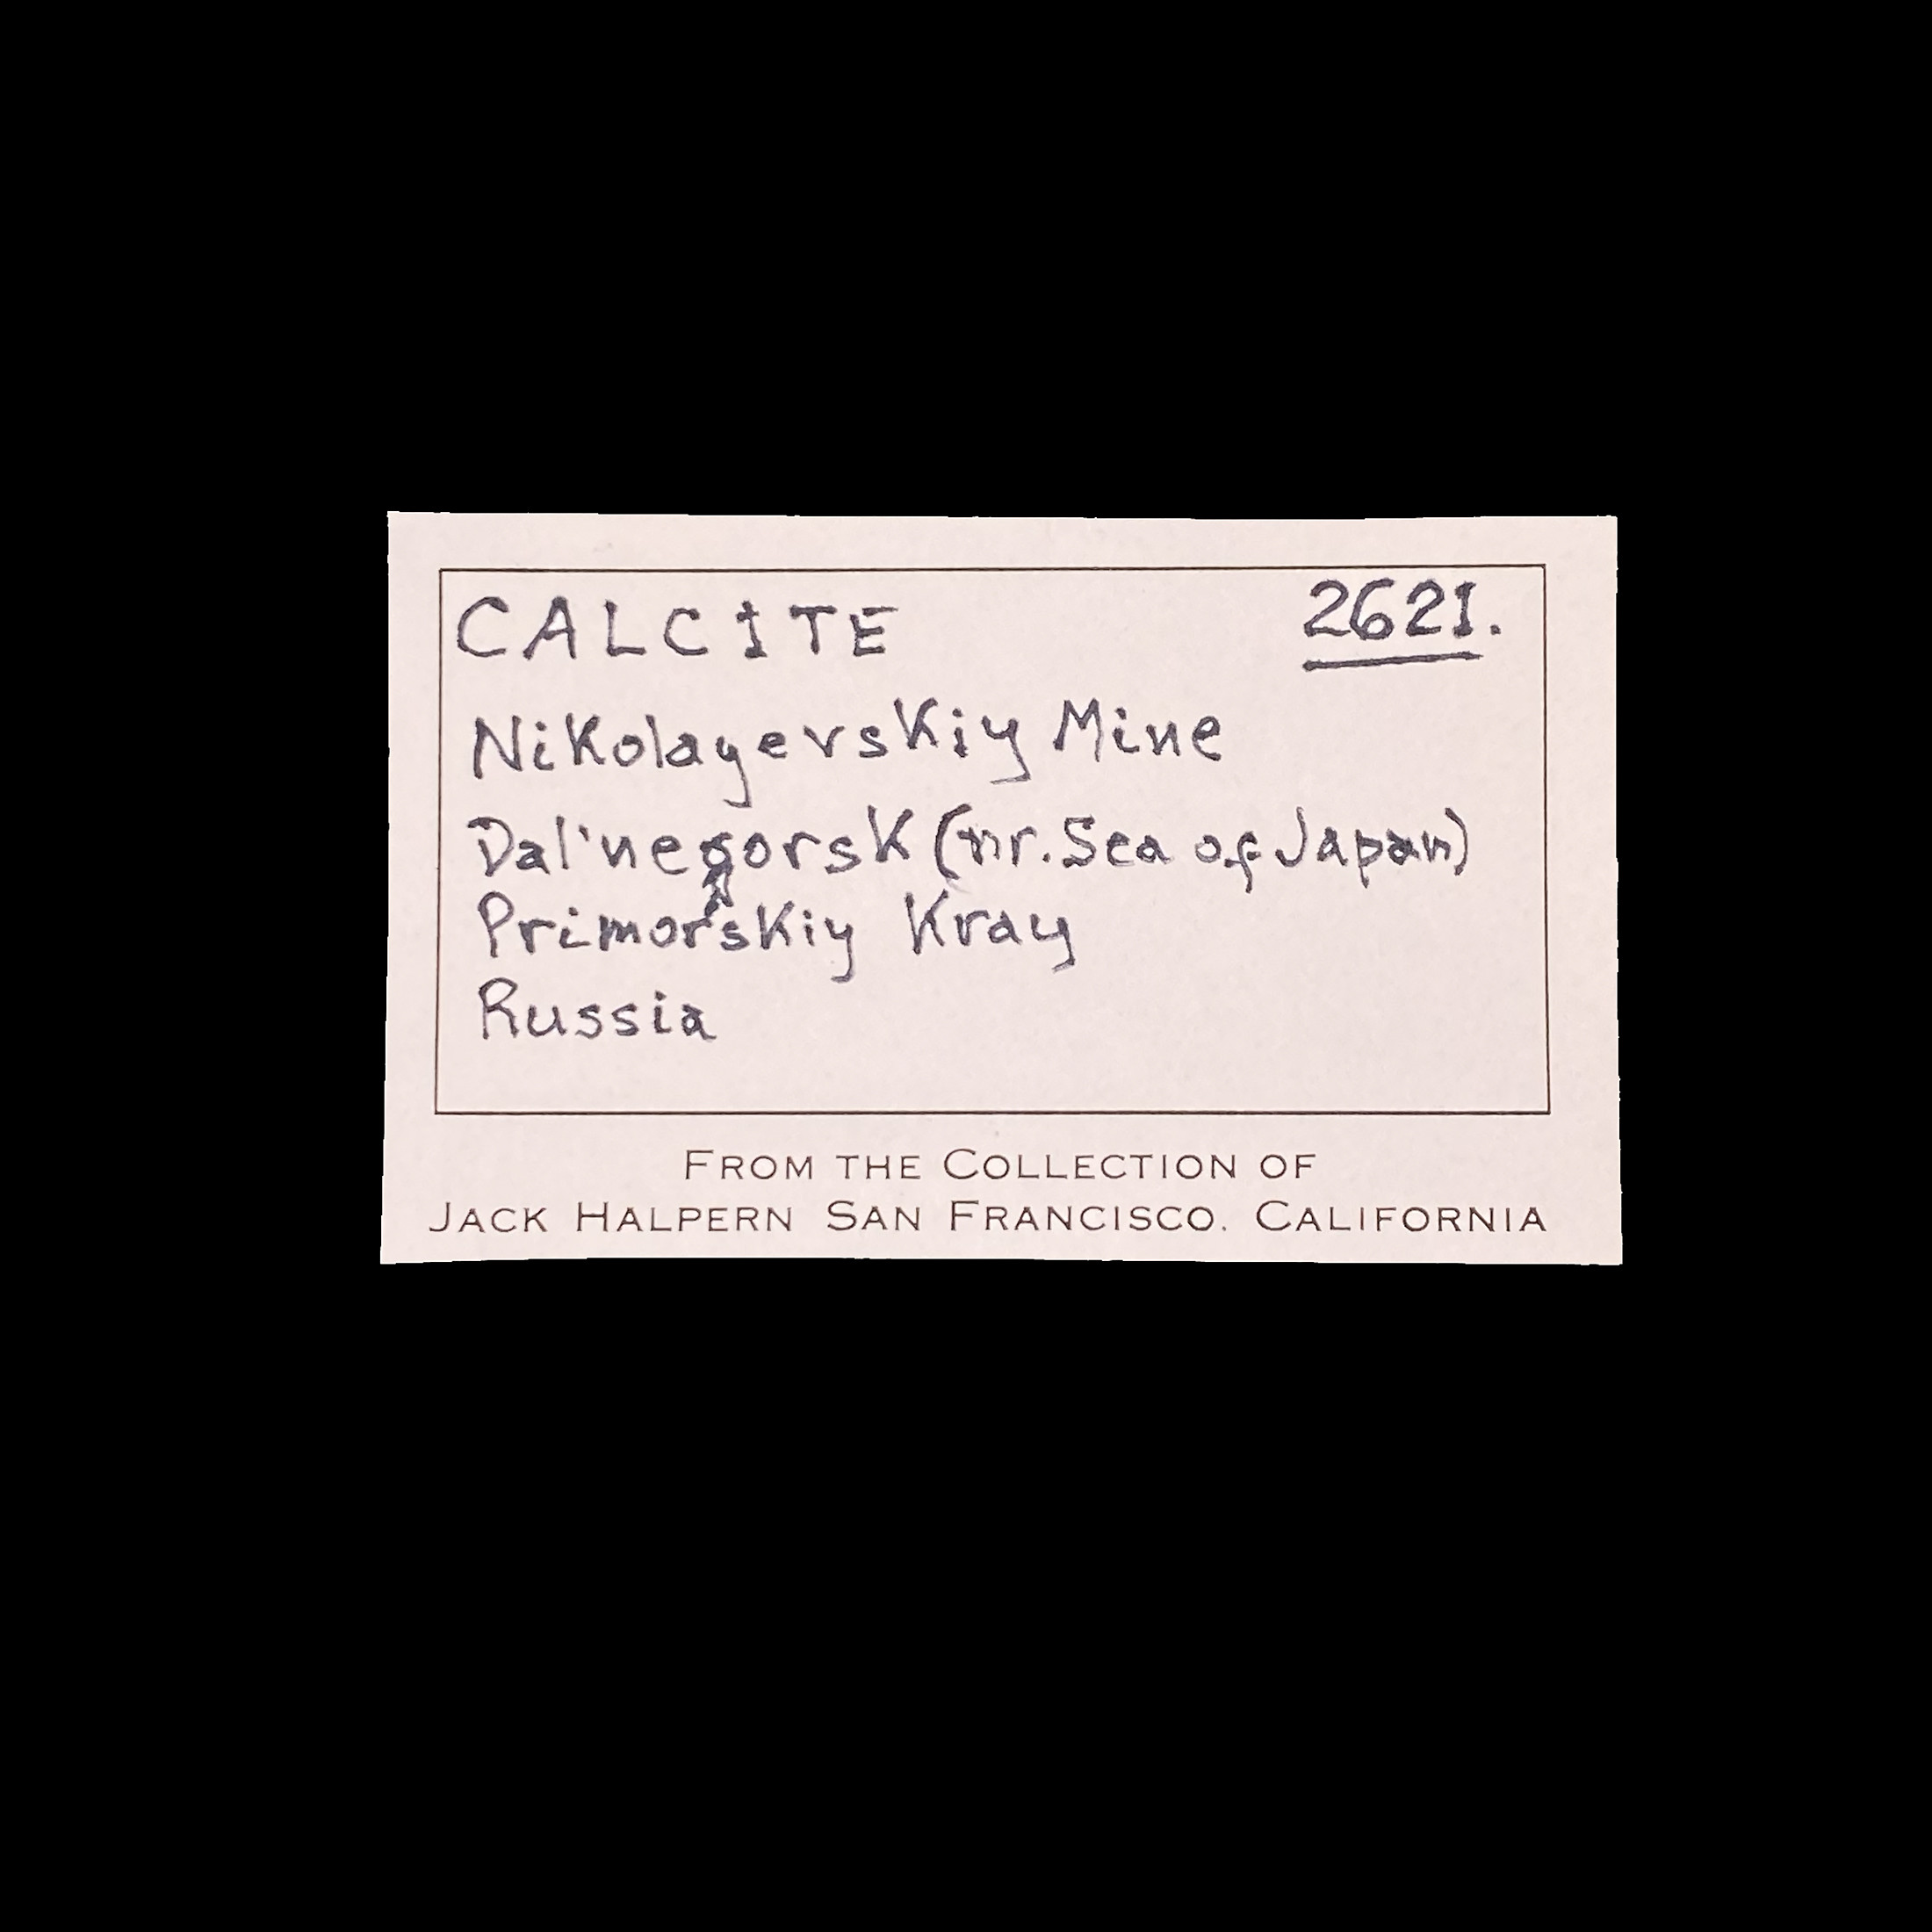 CALCITE 2621.
Nikolayevskiy Mine
Dal'negorsk (nr. Sea of Japan)
Primorskiy Kray
Russia
FROM THE COLLECTION OF
JACK HALPERN SAN FRANCISCO, CALIFORNIA